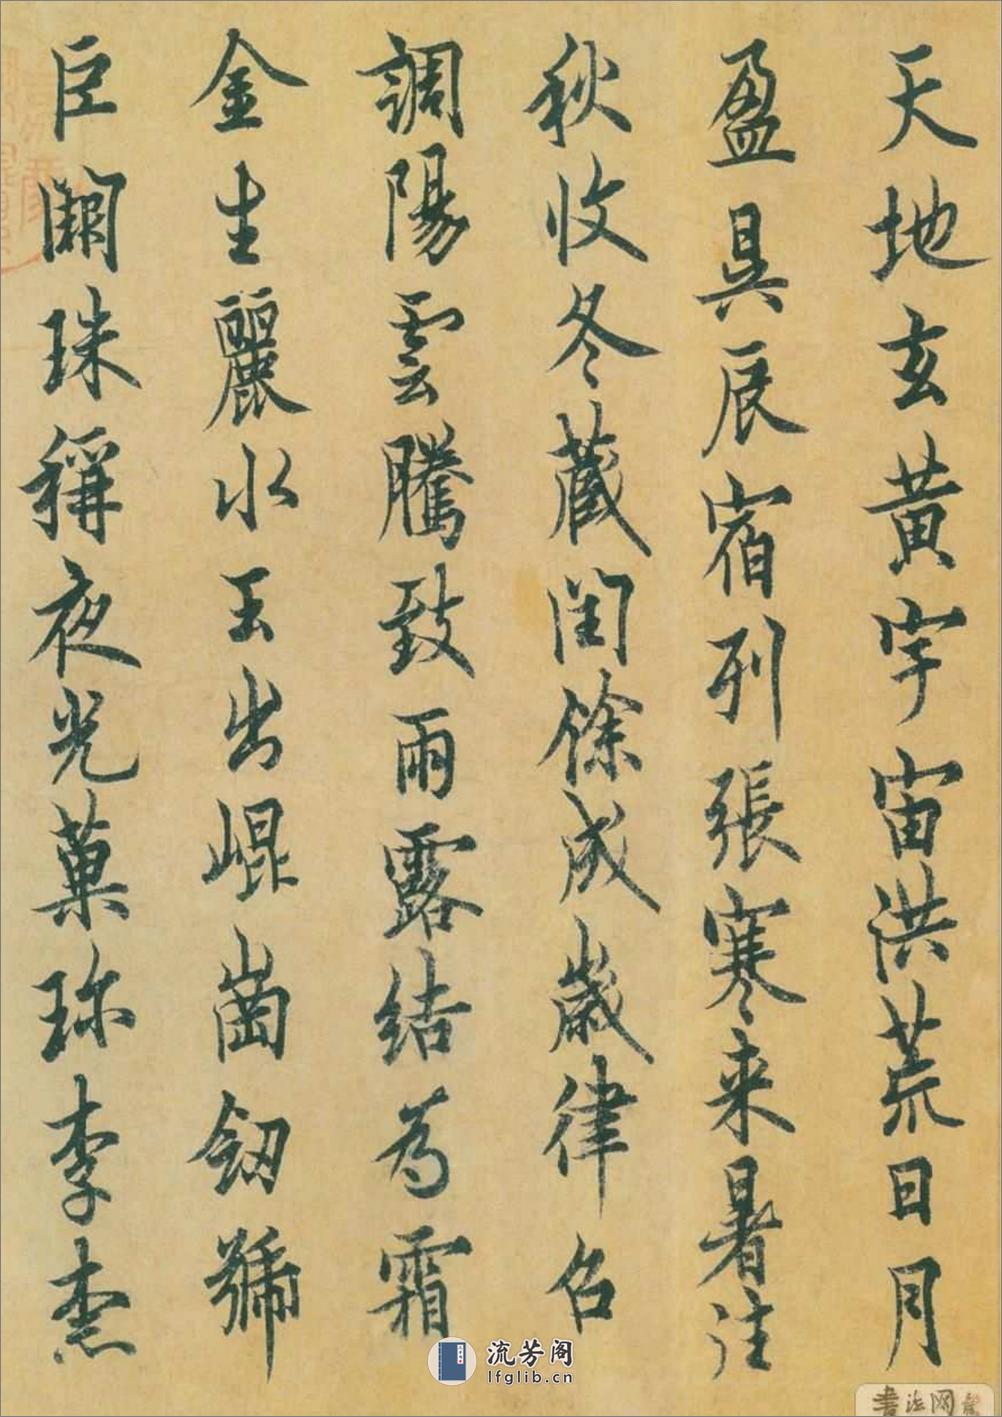 天地玄黃宇宙洪荒日月
盈昃辰宿列張寒来暑往
秋收冬藏閏餘成歲律召
調陽雲騰致雨露結為霜
金生麗水玉出崐崗釰號
巨闕珠稱夜光菓珎李柰
流芳阁
lfglib.cn
書法网